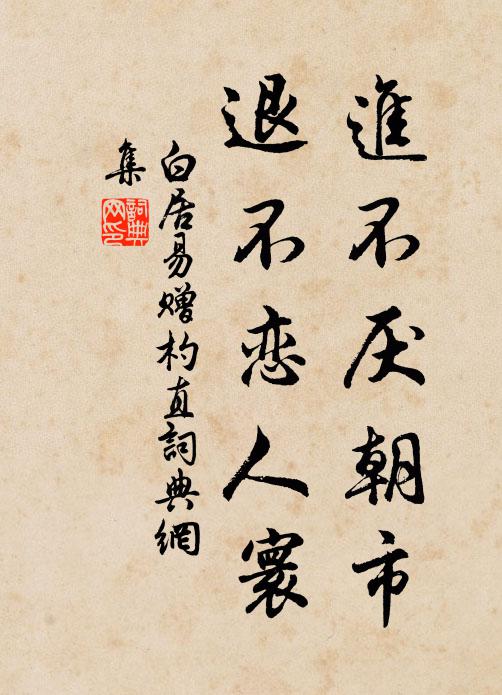 進不厌朝市
退不恋人寰
白居易赠杓直詞典網
集
詞典網印